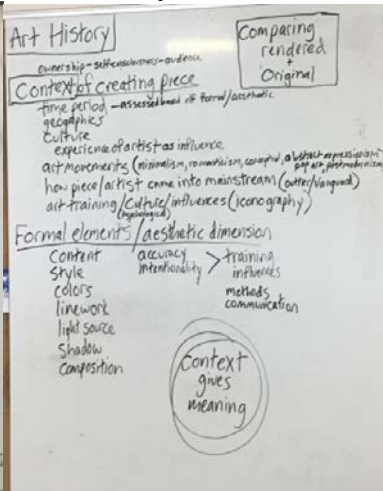 Art History
Comparing
rendered
+
Original
ownership-selfconsciousness-audience
Context of creating piece
time period - assessed based off formal/aesthetic
geographics
Culture
experience of artist as influence
art movements (minimalism, romanticism, conceptual, abstract expressionism
pop art, postmodernism
how piece/artist came into mainstream (outter/vanguard)
art training/culture/influences (iconography)
Formal elements/aesthetic dimension
Content
Style
colors
linework
light source
Shadow
Composition
accuracy
intentionality
>
training
influences
methods
communication
Context
gives
meaning